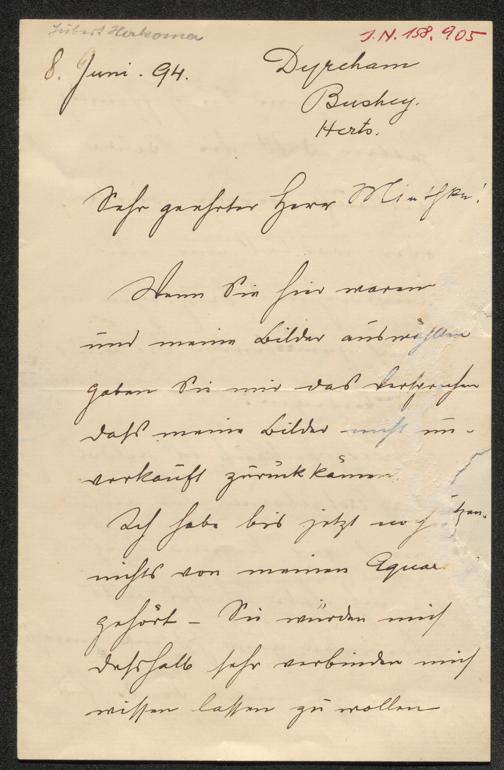 Hubert Herkomer
I.N. 158.905
8. Juni. 94.
Dyreham
Bushey.
Herts.
Sehr geehrter Herr Miethke!
Wenn Sie hier waren
und meine Bilder auswählten
gaben Sie mir das Versprechen
daſs meine Bilder nicht un-
verkauft zurückkämen.
Ich habe bis jetzt noch
nichts von meinen Aquar
gehört – Sie würden mich
deſshalb sehr verbinden mich
wissen lassen zu wollen